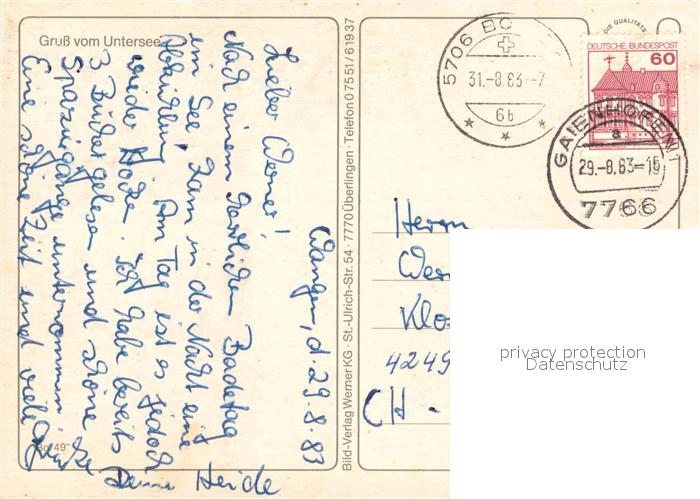 Gruß vom Untersee
Wangen, d. 29.8.83
Lieber Werner!
Nach einem herrlichen Badetag
im See, kam in der Nacht eine
Abkühlung. Am Tag ist es jedoch
wieder heiß. Ich habe bereits
3 Bücher gelesen und schöne
Spaziergänge unternommen.
Eine schöne Zeit und viele Grüße
Deine Heide
Bo/49
Bild-Verlag Werner KG · St.-Ulrich-Str. 54 · 7770 Überlingen · Telefon 07551/61937
5706 BO
31.-8.83--7
6b
DIE QUALITÄTS
DEUTSCHE BUNDESPOST
60
GAIENHOFEN 1
a
29.-8.83-15
7766
Herrn
Wer
Klo
4249
CH -
privacy protection
Datenschutz